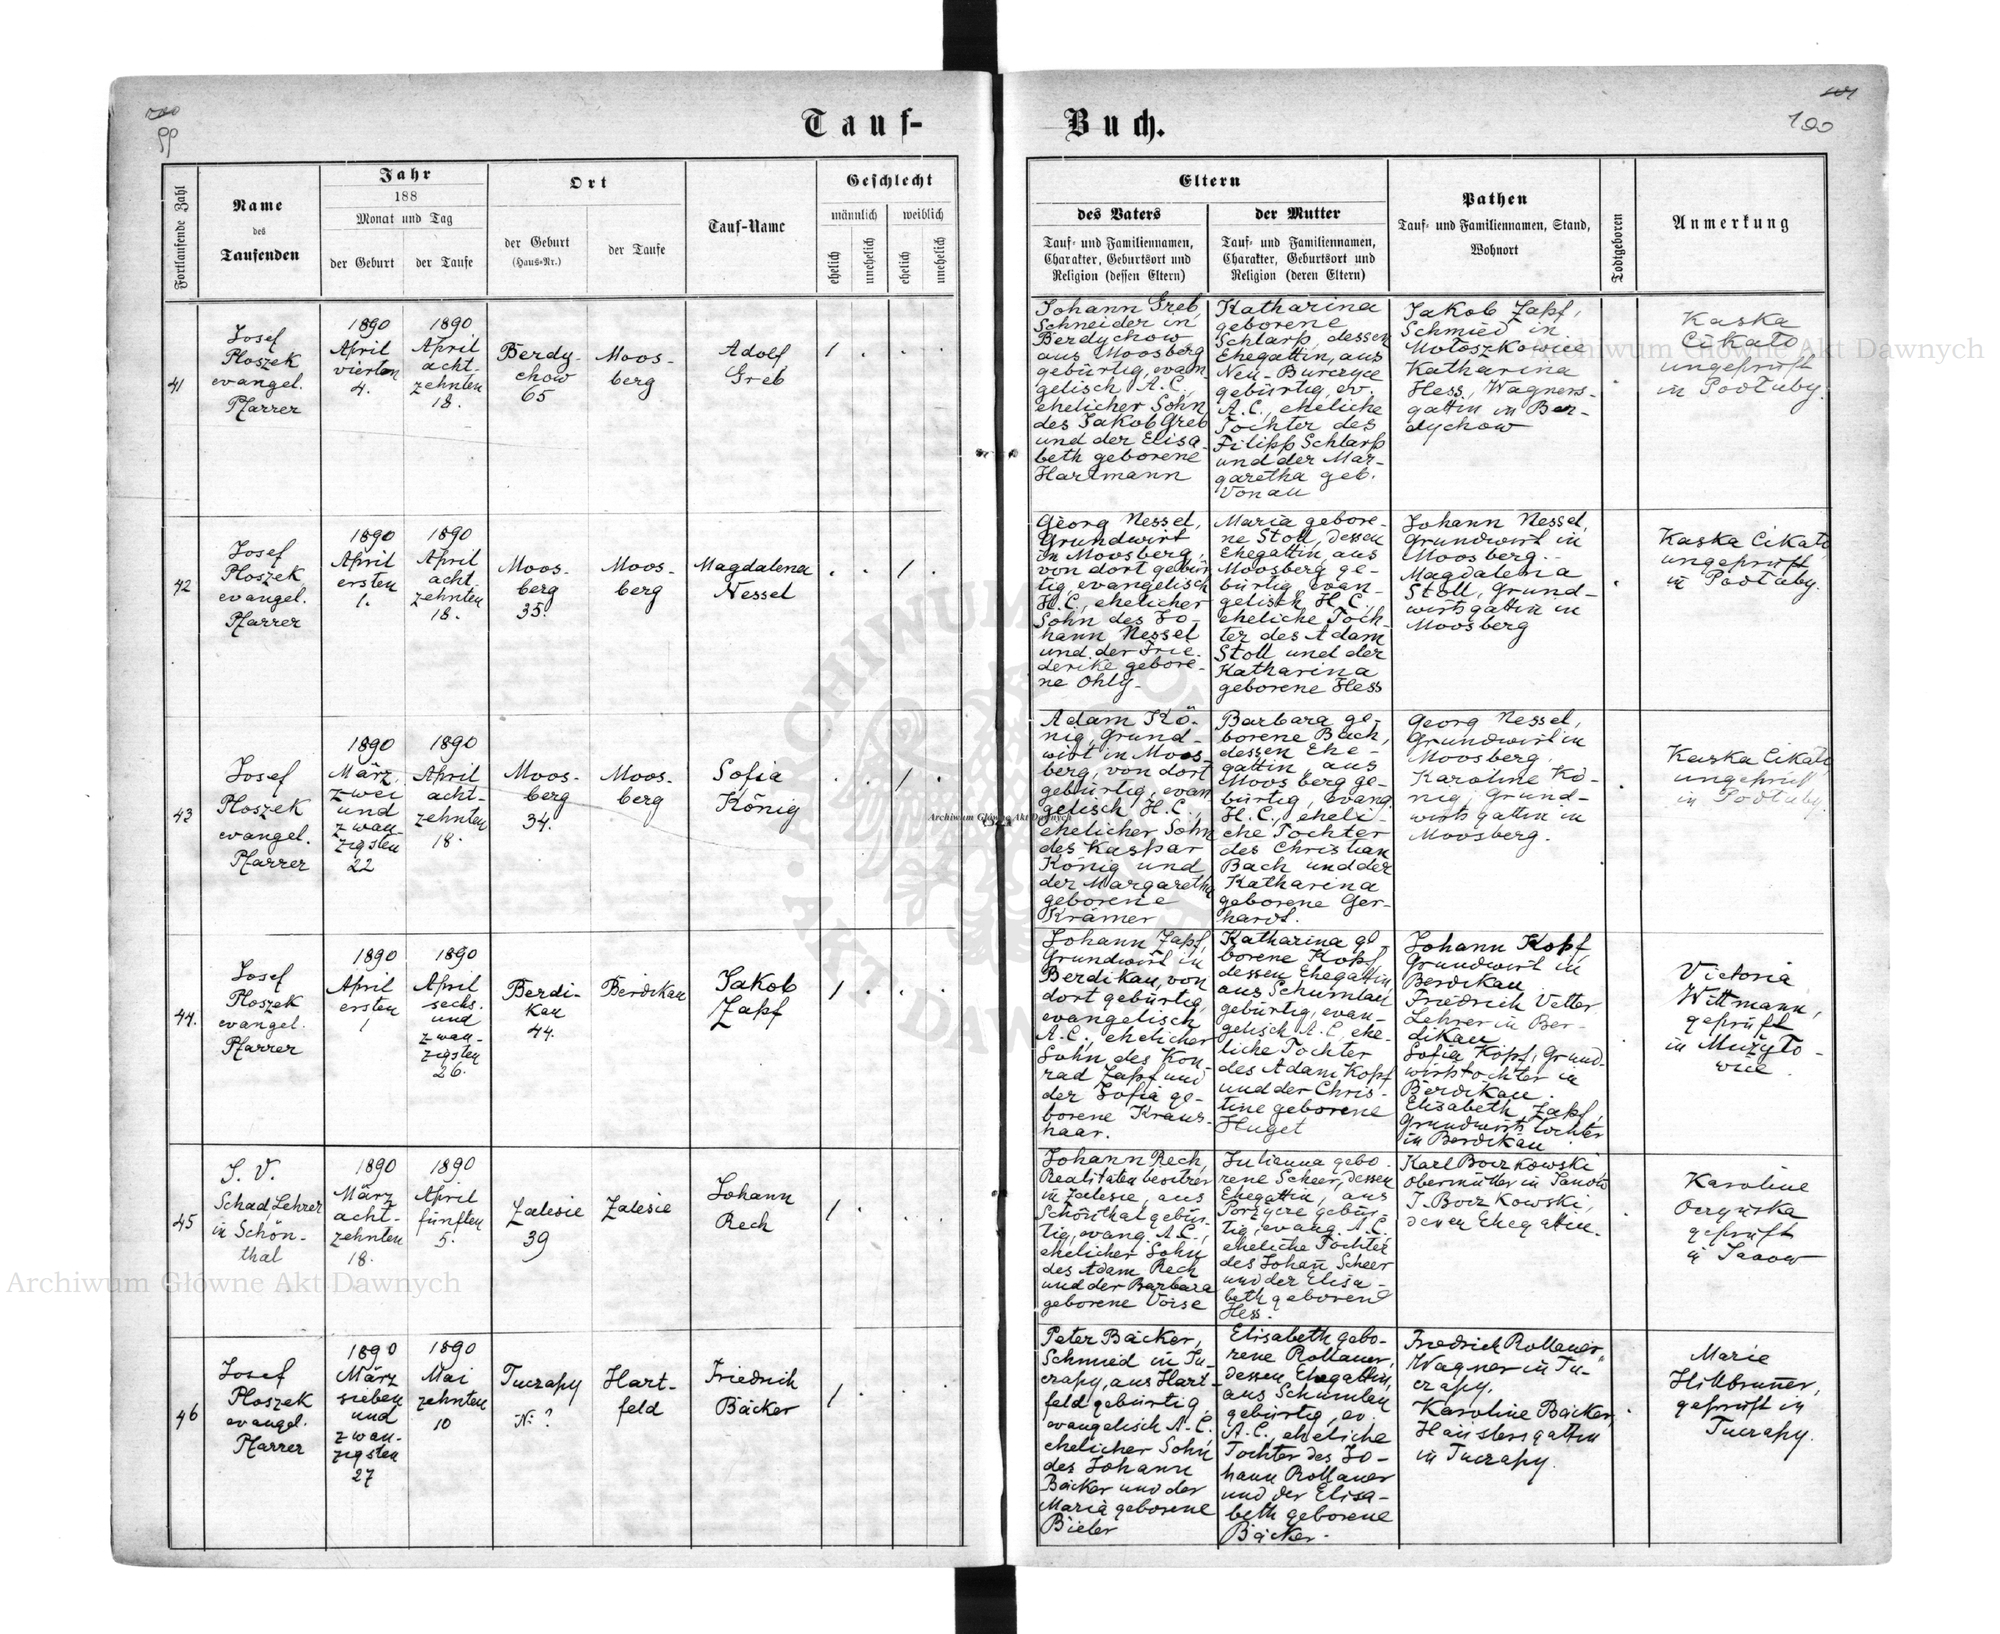 Tauf-
Buch.
100
Fortlaufende Zahl
Name
des
Taufenden
Jahr
188
Monat und Tag
der Geburt
der Taufe
Ort
der Geburt
(Haus=Nr.)
der Taufe
Tauf-Name
Geschlecht
männlich
weiblich
ehelich
unehelich
ehelich
unehelich
Eltern
des Vaters
Tauf- und Familiennamen,
Charakter, Geburtsort und
Religion (dessen Eltern)
der Mutter
Tauf- und Familiennamen,
Charakter, Geburtsort und
Religion (deren Eltern)
Pathen
Tauf- und Familiennamen, Stand,
Wohnort
Todtgeboren
Anmerkung
41
Josef
Ploszek
evangel.
Pfarrer
1890
April
vierten
4.
1890
April
acht-
zehnten
18.
Berdy-
chow
65
Moos-
berg
Adolf
Greb
1
Johann Greb,
Schneider in
Berdychow
aus Moosberg
gebürtig, evan-
gelisch A.C.,
ehelicher Sohn
des Jakob Greb
und der Elisa-
beth geborene
Hartmann
Katharina
geborene
Schlarp, dessen
Ehegattin, aus
Neu-Burczyce
gebürtig, ev.
A.C., eheliche
Tochter des
Filipp Schlarp
und der Mar-
garetha geb.
Vonau
Jakob Zapf,
Schmied in
Mołoszkowice
Katharina
Hess, Wagners-
gattin in Ber-
dychow
Kaska
Cikało
ungeprüft
in Podłuby.
42
Josef
Ploszek
evangel.
Pfarrer
1890
April
ersten
1.
1890
April
acht-
zehnten
18.
Moos-
berg
35.
Moos-
berg
Magdalena
Nessel
1
Georg Nessel,
Grundwirt
in Moosberg,
von dort gebür-
tig, evangelisch
H.C., ehelicher
Sohn des Jo-
hann Nessel
und der Frie-
derike gebore-
ne Ohly.
Maria gebore-
ne Stoll, dessen
Ehegattin aus
Moosberg ge-
bürtig, evan-
gelisch H.C.,
eheliche Toch-
ter des Adam
Stoll und der
Katharina
geborene Hess
Johann Nessel,
Grundwirt in
Moosberg.
Magdalena
Stoll, Grund-
wirtsgattin in
Moosberg
Kaska Cikało
ungeprüft
in Podłuby.
43
Josef
Ploszek
evangel.
Pfarrer
1890
März
zwei
und
zwan-
zigsten
22
1890
April
acht-
zehnten
18.
Moos-
berg
34.
Moos-
berg
Sofia
König
1
Adam Kö-
nig, Grund-
wirt in Moos-
berg, von dort
gebürtig, evan-
gelisch H.C.,
ehelicher Sohn
des Kaspar
König und
der Margaretha
geborene
Krämer
Barbara ge-
borene Bach,
dessen Ehe-
gattin, aus
Moosberg ge-
bürtig, evang.
H.C., eheli-
che Tochter
des Christian
Bach und der
Katharina
geborene Ger-
hardt.
Georg Nessel,
Grundwirt in
Moosberg.
Karoline Kö-
nig, Grund-
wirtsgattin in
Moosberg.
Kaska Cikało
ungeprüft
in Podłuby.
44.
Josef
Ploszek
evangel.
Pfarrer
1890
April
ersten
1
1890
April
sechs-
und
zwan-
zigsten
26.
Berdi-
kau
44.
Berdikau
Jakob
Zapf
1
Johann Zapf,
Grundwirt in
Berdikau, von
dort gebürtig,
evangelisch
A.C., ehelicher
Sohn des Kon-
rad Zapf und
der Sofia ge-
borene Kraus-
haar.
Katharina ge-
borene Kopf,
dessen Ehegattin,
aus Schumlau
gebürtig, evan-
gelisch A.C., ehe-
liche Tochter
des Adam Kopf
und der Chris-
tine geborene
Huget
Johann Kopf,
Grundwirt in
Berdikau.
Friedrich Vetter
Lehrer in Ber-
dikau
Sofia Kopf, Grund-
wirtstochter in
Berdikau.
Elisabeth Zapf,
Grundwirtstochter
in Berdikau
Victoria
Wittmann,
geprüft
in Mużyło-
wice.
45
J. V.
Schad, Lehrer
in Schön-
thal
1890
März
acht-
zehnten
18.
1890
April
fünften
5.
Zalesie
39
Zalesie
Johann
Rech
1
Johann Rech,
Realitätenbesitzer
in Zalesie, aus
Schönthal gebür-
tig, evang. A.C.,
ehelicher Sohn
des Adam Rech
und der Barbara
geborene Voise
Julianna gebo-
rene Scheer, dessen
Ehegattin, aus
Porzycze gebür-
tig, evang. A.C.,
eheliche Tochter
des Johan̄ Scheer
und der Elisa-
beth geborene
Hess.
Karl Boczkowski
Obermüller in Janów
J. Boczkowski,
dessen Ehegattin.
Karoline
geprüft
in Janow
46
Josef
Ploszek
evangel.
Pfarrer
1890
März
sieben
und
zwan-
zigsten
27
1890
Mai
zehnten
10
Tuczapy
N: ?
Hart-
feld
Friedrich
Bäcker
1
Peter Bäcker,
Schmied in Tu-
czapy, aus Hart-
feld gebürtig,
evangelisch A.C.
ehelicher Sohn
des Johann
Bäcker und der
Maria geborene
Bieler
Elisabeth gebo-
rene Rollauer,
dessen Ehegattin,
aus Schumlau
gebürtig, ev.
A.C., eheliche
Tochter des Jo-
hann Rollauer
und der Elisa-
beth geborene
Bäcker.
Friedrich Rollauer,
Wagner in Tu-
czapy.
Karoline Bäcker,
Häuslersgattin
in Tuczapy.
Marie
Hillbrun̄er,
geprüft in
Tuczapy.
Archiwum Główne Akt Dawnych
Archiwum Główne Akt Dawnych
Archiwum Główne Akt Dawnych